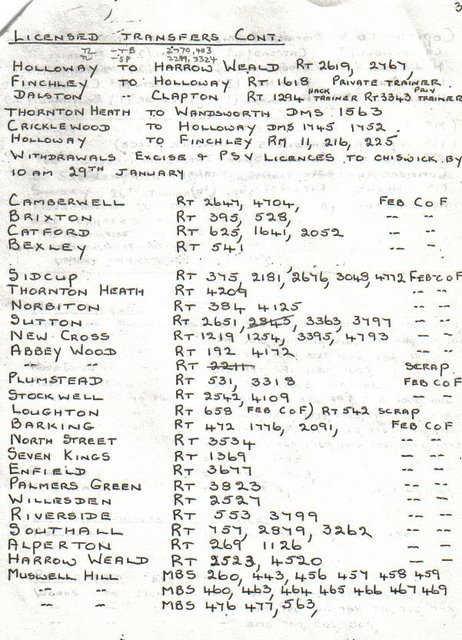 3
LICENSED TRANSFERS CONT.
HOLLOWAY TO HARROW WEALD RT 2619, 2767
FINCHLEY TO HOLLOWAY RT 1618 PRIVATE TRAINER.
DALSTON -- CLAPTON RT 1294 TRAINER RT 3343 TRAINER
THORNTON HEATH TO WANDSWORTH DMS 1563
CRICKLEWOOD TO HOLLOWAY DMS 1745 1752.
HOLLOWAY TO FINCHLEY RM 11, 216, 225
WITHDRAWALS EXCISE & PSV LICENCES TO CHISWICK BY
10 AM 29TH JANUARY
CAMBERWELL RT 2647, 4704, FEB C OF F
BRIXTON RT 395, 528, -- --
CATFORD RT 625, 1641, 2052 -- --
BEXLEY RT 541 -- --
SIDCUP RT 375, 2181, 2676, 3048, 4772 FEB C OF F
THORNTON HEATH RT 4209 -- --
NORBITON RT 384 4125 -- --
SUTTON RT 2651, 2843, 3363, 3797 -- --
NEW CROSS RT 1219 1254, 3395, 4793 -- --
ABBEY WOOD RT 192 4172 -- --
-- -- RT 2211 SCRAP.
PLUMSTEAD RT 531, 3318 FEB C OF F
STOCKWELL RT 2542, 4109 -- --
LOUGHTON RT 658 (FEB C OF F) RT 542 SCRAP
BARKING RT 472, 1776, 2091, FEB C OF F
NORTH STREET RT 3534 -- --
SEVEN KINGS RT 1369 -- --
ENFIELD RT 3677 -- --
PALMERS GREEN RT 3823 -- --
WILLESDEN RT 2527 -- --
RIVERSIDE RT 553 3799 -- --
SOUTHALL RT 757, 2879, 3262 -- --
ALPERTON RT 269 1126 -- --
HARROW WEALD RT 2523, 4520 -- --
MUSWELL HILL MBS 260, 443, 456 457 458 459
-- -- MBS 460, 463, 464 465 466 467 469
-- -- MBS 476 477, 563,